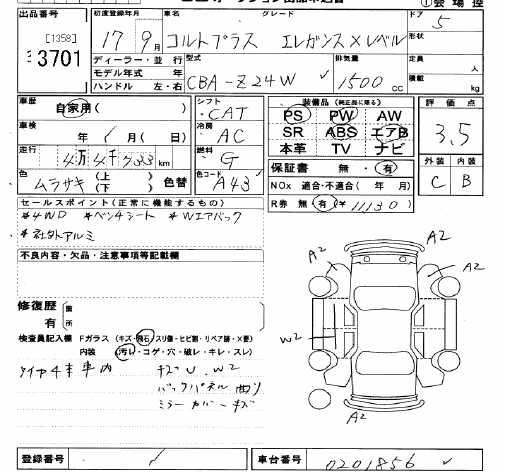 出品番号
初度登録年月 車名 グレード ドア
[1358]
3701
17 9月 コルトプラス エレガンスXレベル 5
形状
ディーラー・並行 型式 排気量 定員
モデル年式 年 人
CBA-Z24W 1500cc
ハンドル 左・右 積載 kg
車歴 自家用( ) シフト CAT
装備品 (純正品に限る) 評価点
PS PW AW
車検 年 月(日) 冷房 AC
SR ABS エアB 3.5
本革 TV ナビ
走行 km 燃料 G
外装 内装
保証書 無・有
色 ムラサキ (上)(下) 色替 色コード A43
C B
NOx 適合・不適合( 年 月)
R券 無・有(¥ 11130 )
セールスポイント(正常に機能するもの)
*4WD *ベンチシート *Wエアバック
*社外アルミ
不良内容・欠品・注意事項等記載欄
A2 A2
A2
修復歴 無
有 所
検査員記入欄 Fガラス (キズ・飛石・スリ傷・ヒビ割・リペア跡・X要)
W2
内装 (汚レ・コゲ・穴・破レ・キレ・スレ)
タイヤ4本車内 キズU.W2
バックパネル曲リ
ミラーカバーキズ
A2
登録番号 車台番号 0201856